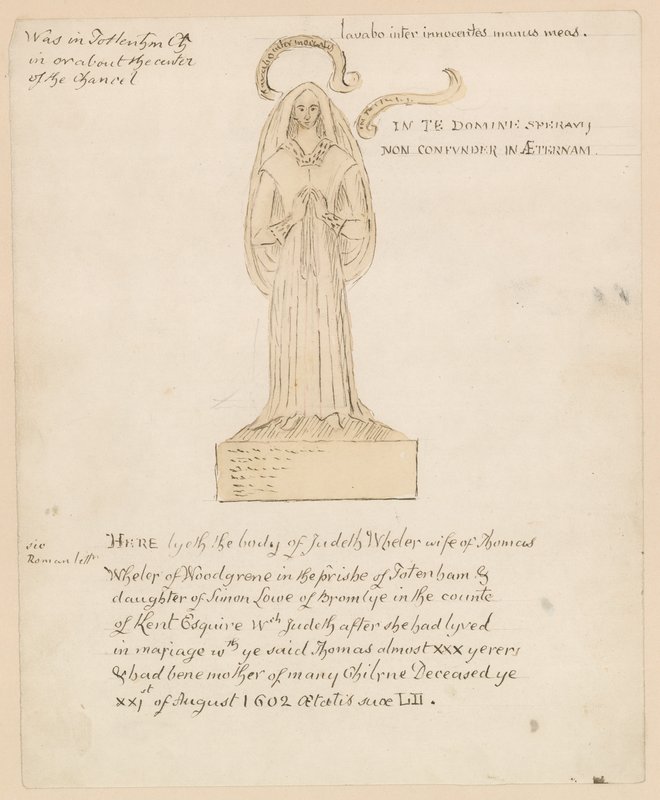 Was in Tottenhm Ch
in or about the center
of the Chancel
lavabo inter innocentes manus meas.
lavabo inter innocentes
IN TE DOMINE SPERAVI
NON CONFVNDER IN ÆTERNAM.
sic
Roman lettr
HERE lyeth the body of Judeth Wheler wife of Thomas
Wheler of Woodgrene in the prishe of Totenham &
daughter of Simon Lowe of Bromlye in the counte
of Kent Esquire Wch Judeth after she had lyved
in mariage wth ye said Thomas almost xxx yerers
& had bene mother of many Chilrne Deceased ye
xxjst of August 1602 Ætatis suæ LII.